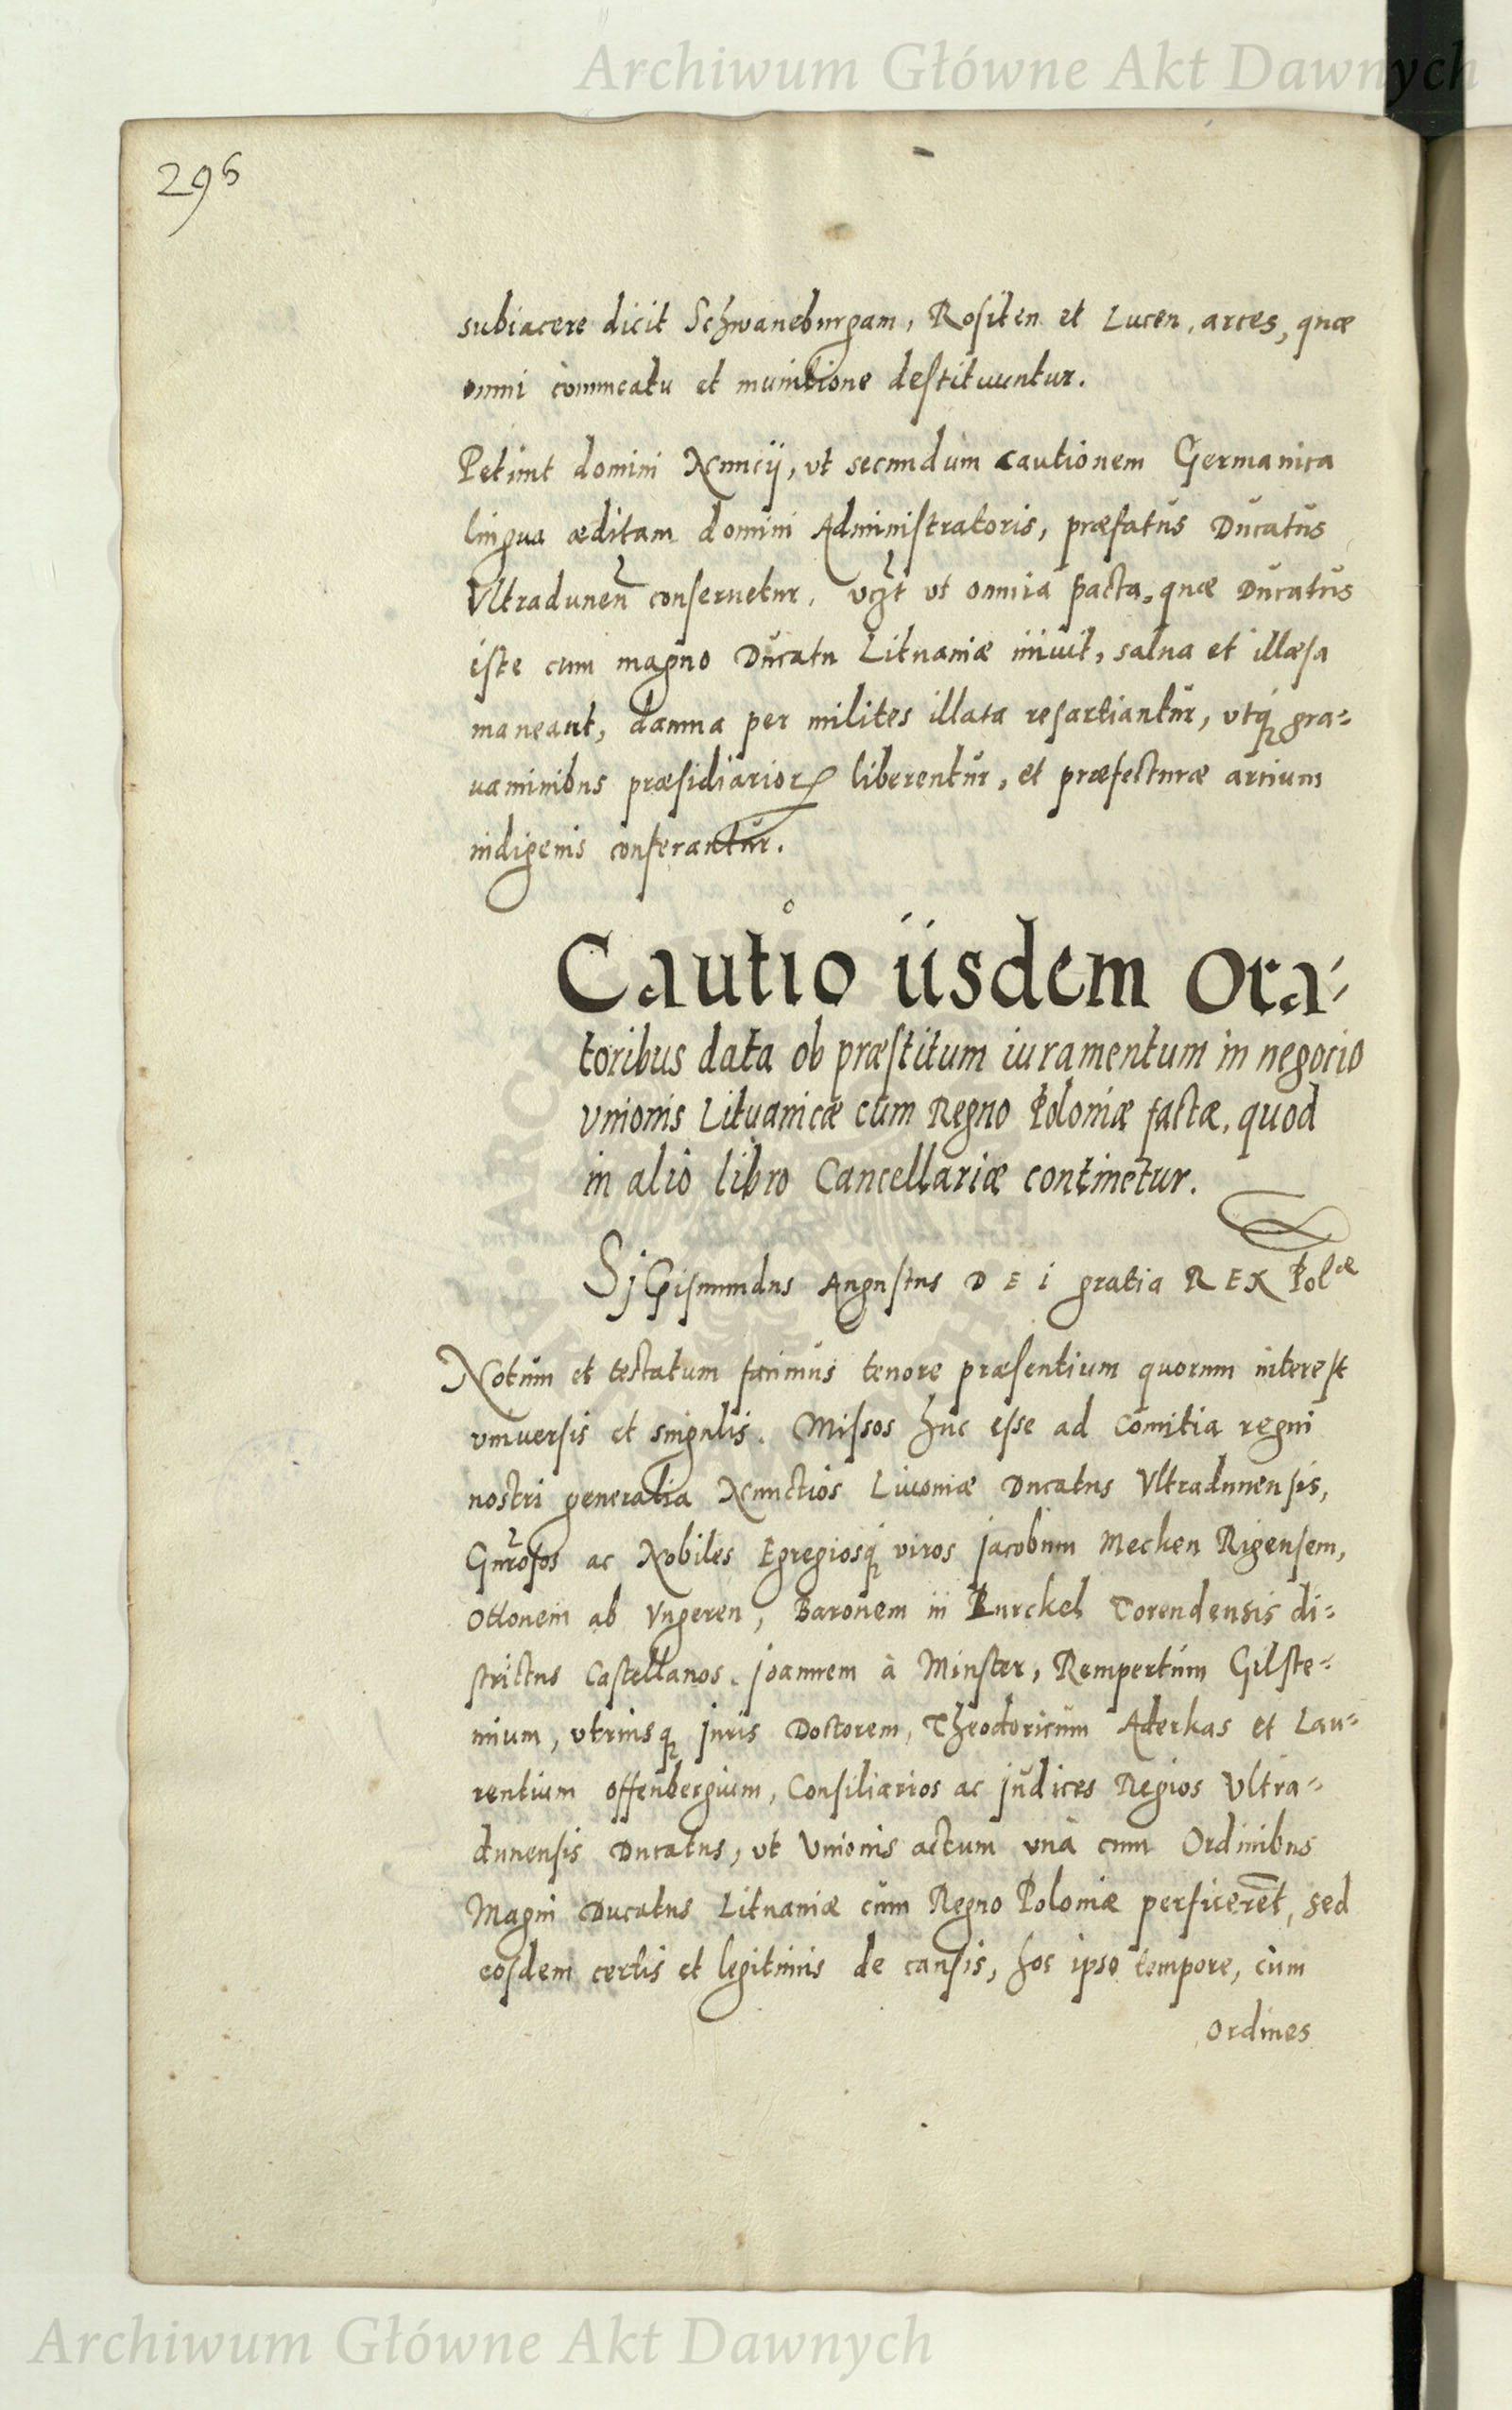 Archiwum Główne Akt Dawnych
296
subiacere dicit Schwaneburgam, Rositen et Lucen, arces, quæ
omni commeatu et munitione destituuntur.
Petunt domini Nuncij, vt secundum cautionem Germanica
lingua æditam domini Administratoris, præfatus Ducatus
Vltradunen̄ conseruetur, vt omnia pacta, quæ Ducatus
iste cum magno Ducatu Lituaniæ iniuit, salua et illæsa
maneant, damna per milites illata resartiantur, vtq́ gra-
uaminibus præsidiarioꝝ liberentur, et præfecturæ arcium
indigenis conferantur.
Cautio iisdem Ora-
toribus data ob præstitum iuramentum in negocio
vnionis Lituanicæ cum Regno Poloniæ factæ, quod
in alio libro Cancellariæ continetur.
Sigismundus Augustus DEI gratia REX Polæ
Notum et testatum facimus tenore præsentium quorum interest
vniuersis et singulis. Missos huc esse ad Comitia regni
nostri generalia Nunctios Liuoniæ Ducatus Vltradunensis,
Gnrosos ac Nobiles Egregiosq́ viros Jacobum Mecken Rigensem,
Ottonem ab Vngeren, Baronem in Purckel Torendensis di-
strictus Castellanos. Joannem à Minster, Rempertum Gilshe-
mium, vtriusq́ Juris Doctorem, Theodoricum Aderkas et Lau-
rentium Offenbergium, Consiliarios ac Judices Regios Vltra-
dunensis Ducatus, vt Vnionis actum vnà cum Ordinibus
Magni Ducatus Lituaniæ cum Regno Poloniæ perficerēt, sed
eosdem certis et legitimis de causis, hoc ipso tempore, cum
Ordines
Archiwum Główne Akt Dawnych